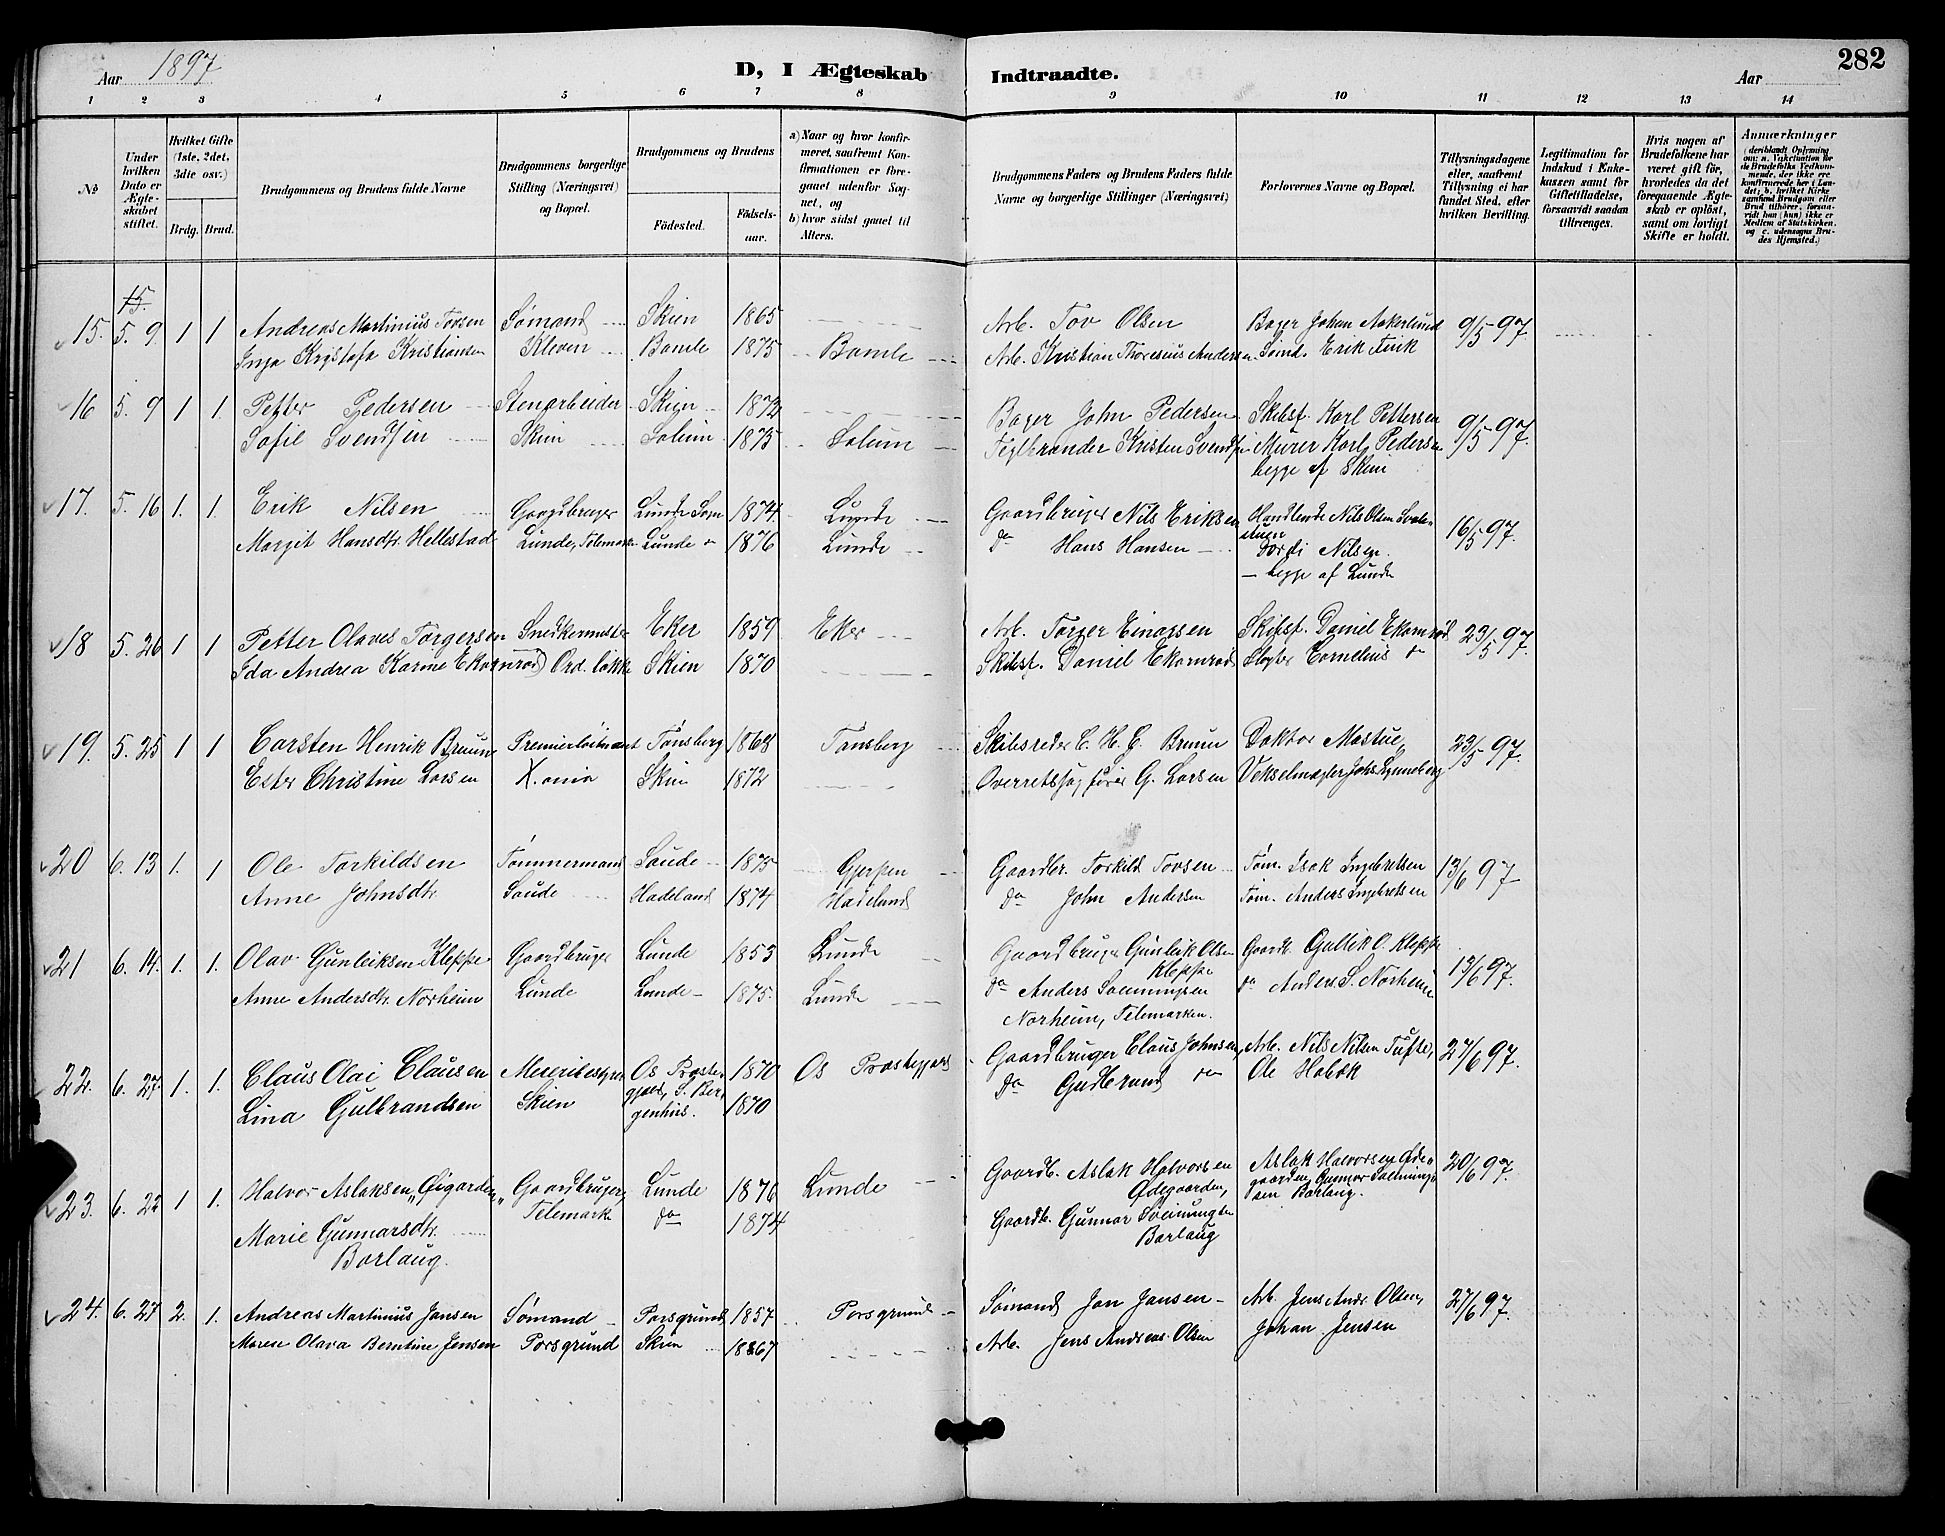 Aar 1897
D, I Ægteskab Indtraadte.
Aar
282
1 2 3 4 5 6 7 8 9 10 11 12 13 14
No
Under hvilken Dato er Ægteskabet stiftet.
Hvilket Gifte (1ste, 2det, 3die osv.)
Brdg. Brud.
Brudgommens og Brudens fulde Navne
Brudgommens borgerlige Stilling (Næringsvei) og Bopæl.
Brudgommens og Brudens
Fødested.
Födsels-aar.
a) Naar og hvor konfirmeret, saafremt Konfirmationen er foregaaet udenfor Sognet, og
b) hvor sidst gaaet til Alters.
Brudgommens Faders og Brudens Faders fulde Navne og borgerlige Stillinger (Næringsvei)
Forlovernes Navne og Bopæl.
Tillysningsdagene eller, saafremt Tillysning ei har fundet Sted, efter hvilken Bevilling.
Legitimation for Indskud i Enkekassen samt for Giftetilladelse, forsaavidt saadan tiltrænges.
Hvis nogen af Brudefolkene har været gift før, hvorledes da det foregaaende Ægteskab er opløst, samt om lovligt Skifte er holdt.
Anmærkninger (deriblandt Oplysning om: a. Vakcination for de Brudefolks Vedkommende, der ikke ere konfirmerede her i Landet; b. hvilket Kirkesamfund Brudgom eller Brud tilhører, forsaavidt han (hun) ikke er Medlem af Statskirken, og c. udensogns Brudes Hjemsted.)
15.
15. 5. 9. 1 1 Andreas Martinius Tovsen Sømand Skien 1865 Arb. Tov Olsen Bager Johan Aakerlund 9/5 97.
Inga Kristofa Kristiansen Kleven Bamle 1875 Bamle Arb. Kristian Thoresius Andersen Sømd. Erik Fink
16 5. 9 1 1. Petter Pedersen Stenarbeider Skien 1872 Bager John Pedersen Skibsf. Karl Pettersen 9/5 97.
Sofie Svendsen Skien Solum 1875 Solum Teglbrander Kristen Svendsen Murer Karl Pedersen
begge af Skien
17. 5. 16 1. 1. Erik Nilsen Gaardbruger Lunde Sogn 1874. Lunde Gaardbruger Nils Eriksen Handlende Nils Olsen 16/5 97.
Margit Hansdtr. Hellestad Lunde, Telemark Lunde " 1876 Lunde do Hans Hansen Nilsen.
— begge af Lunde
18 5. 26 1 1 Petter Olaves Torgersen Snedkermester Eker 1859 Eker Arb. Torger Einarsen Skibsf. Daniel Ekornrød 23/5 97.
Ida Andrea Karine Ekornrød Skien 1870 Skibsf. Daniel Ekornrød Slagter Cornelius do
19. 5. 25 1 1 Carsten Henrik Bruun Premierløitnant Tønsberg 1868 Tønsberg Skibsreder C. H. C. Bruun Doktor Mastue, 23/5 97.
Ester Christine Larsen X.ania Skien 1872 Overretssagfører G. Larsen Vekselmægler Johs. Lynneberg
20 6. 13 1. 1 Ole Torkildsen Tømmermand Saude 1875 Gjerpen Gaardbr. Torkild Tovsen Tøm. Isak Ingebretsen 13/6 97
Anne Johnsdtr. Saude Hadeland 1874 Hadeland do John Andersen Tøm. Anders Ingebretsen
21 6. 14. 1. 1. Olav Gunleiksen Kleppe Gaardbruger Lunde 1853 Lunde Gaardbruger Gunleik Olsen Kleppe Gaardb. Gullik O. Kleppe 13/6 97.
Anne Andersdtr. Norheim Lunde Lunde 1875. Lunde do Anders Sveinungsen Norheim, Telemarken. do Anders S. Norheim
22. 6. 27. 1. 1. Claus Olai Clausen Meieribestyrer Os Præstegjæld, S. Bergenhus. 1870 Os Præstegjæld Gaardbruger Claus Johnsen, Arb. Nils Nilsen Tufte, 27/6 97.
Lina Gulbrandsen Skien 1870 do Gudbrand Ole Habæk
23. 6. 22 1 1. Halvor Aslaksen „Øigarden" Gaardbruger, Lunde 1876 Lunde Gaardb. Aslak Halvorsen Ødegaarden, Aslak Halvorsen Ødegaarden, Gunnar Sveinungsen Borlaug. 20/6 97.
Marie Gunnarsdtr. Borlaug. Telemark do 1874 Gaardb. Gunnar Sveinungsen Borlaug
24. 6. 27 2. 1. Andreas Martinius Jansen Sømand Porsgrund 1857 Porsgrund Sømand Jan Jansen Arb. Jens Andr. Olsen, 27/6 97.
Maren Olava Berntine Jensen Porsgrund Skien 1867 Arb. Jens Andreas Olsen Johan Jensen